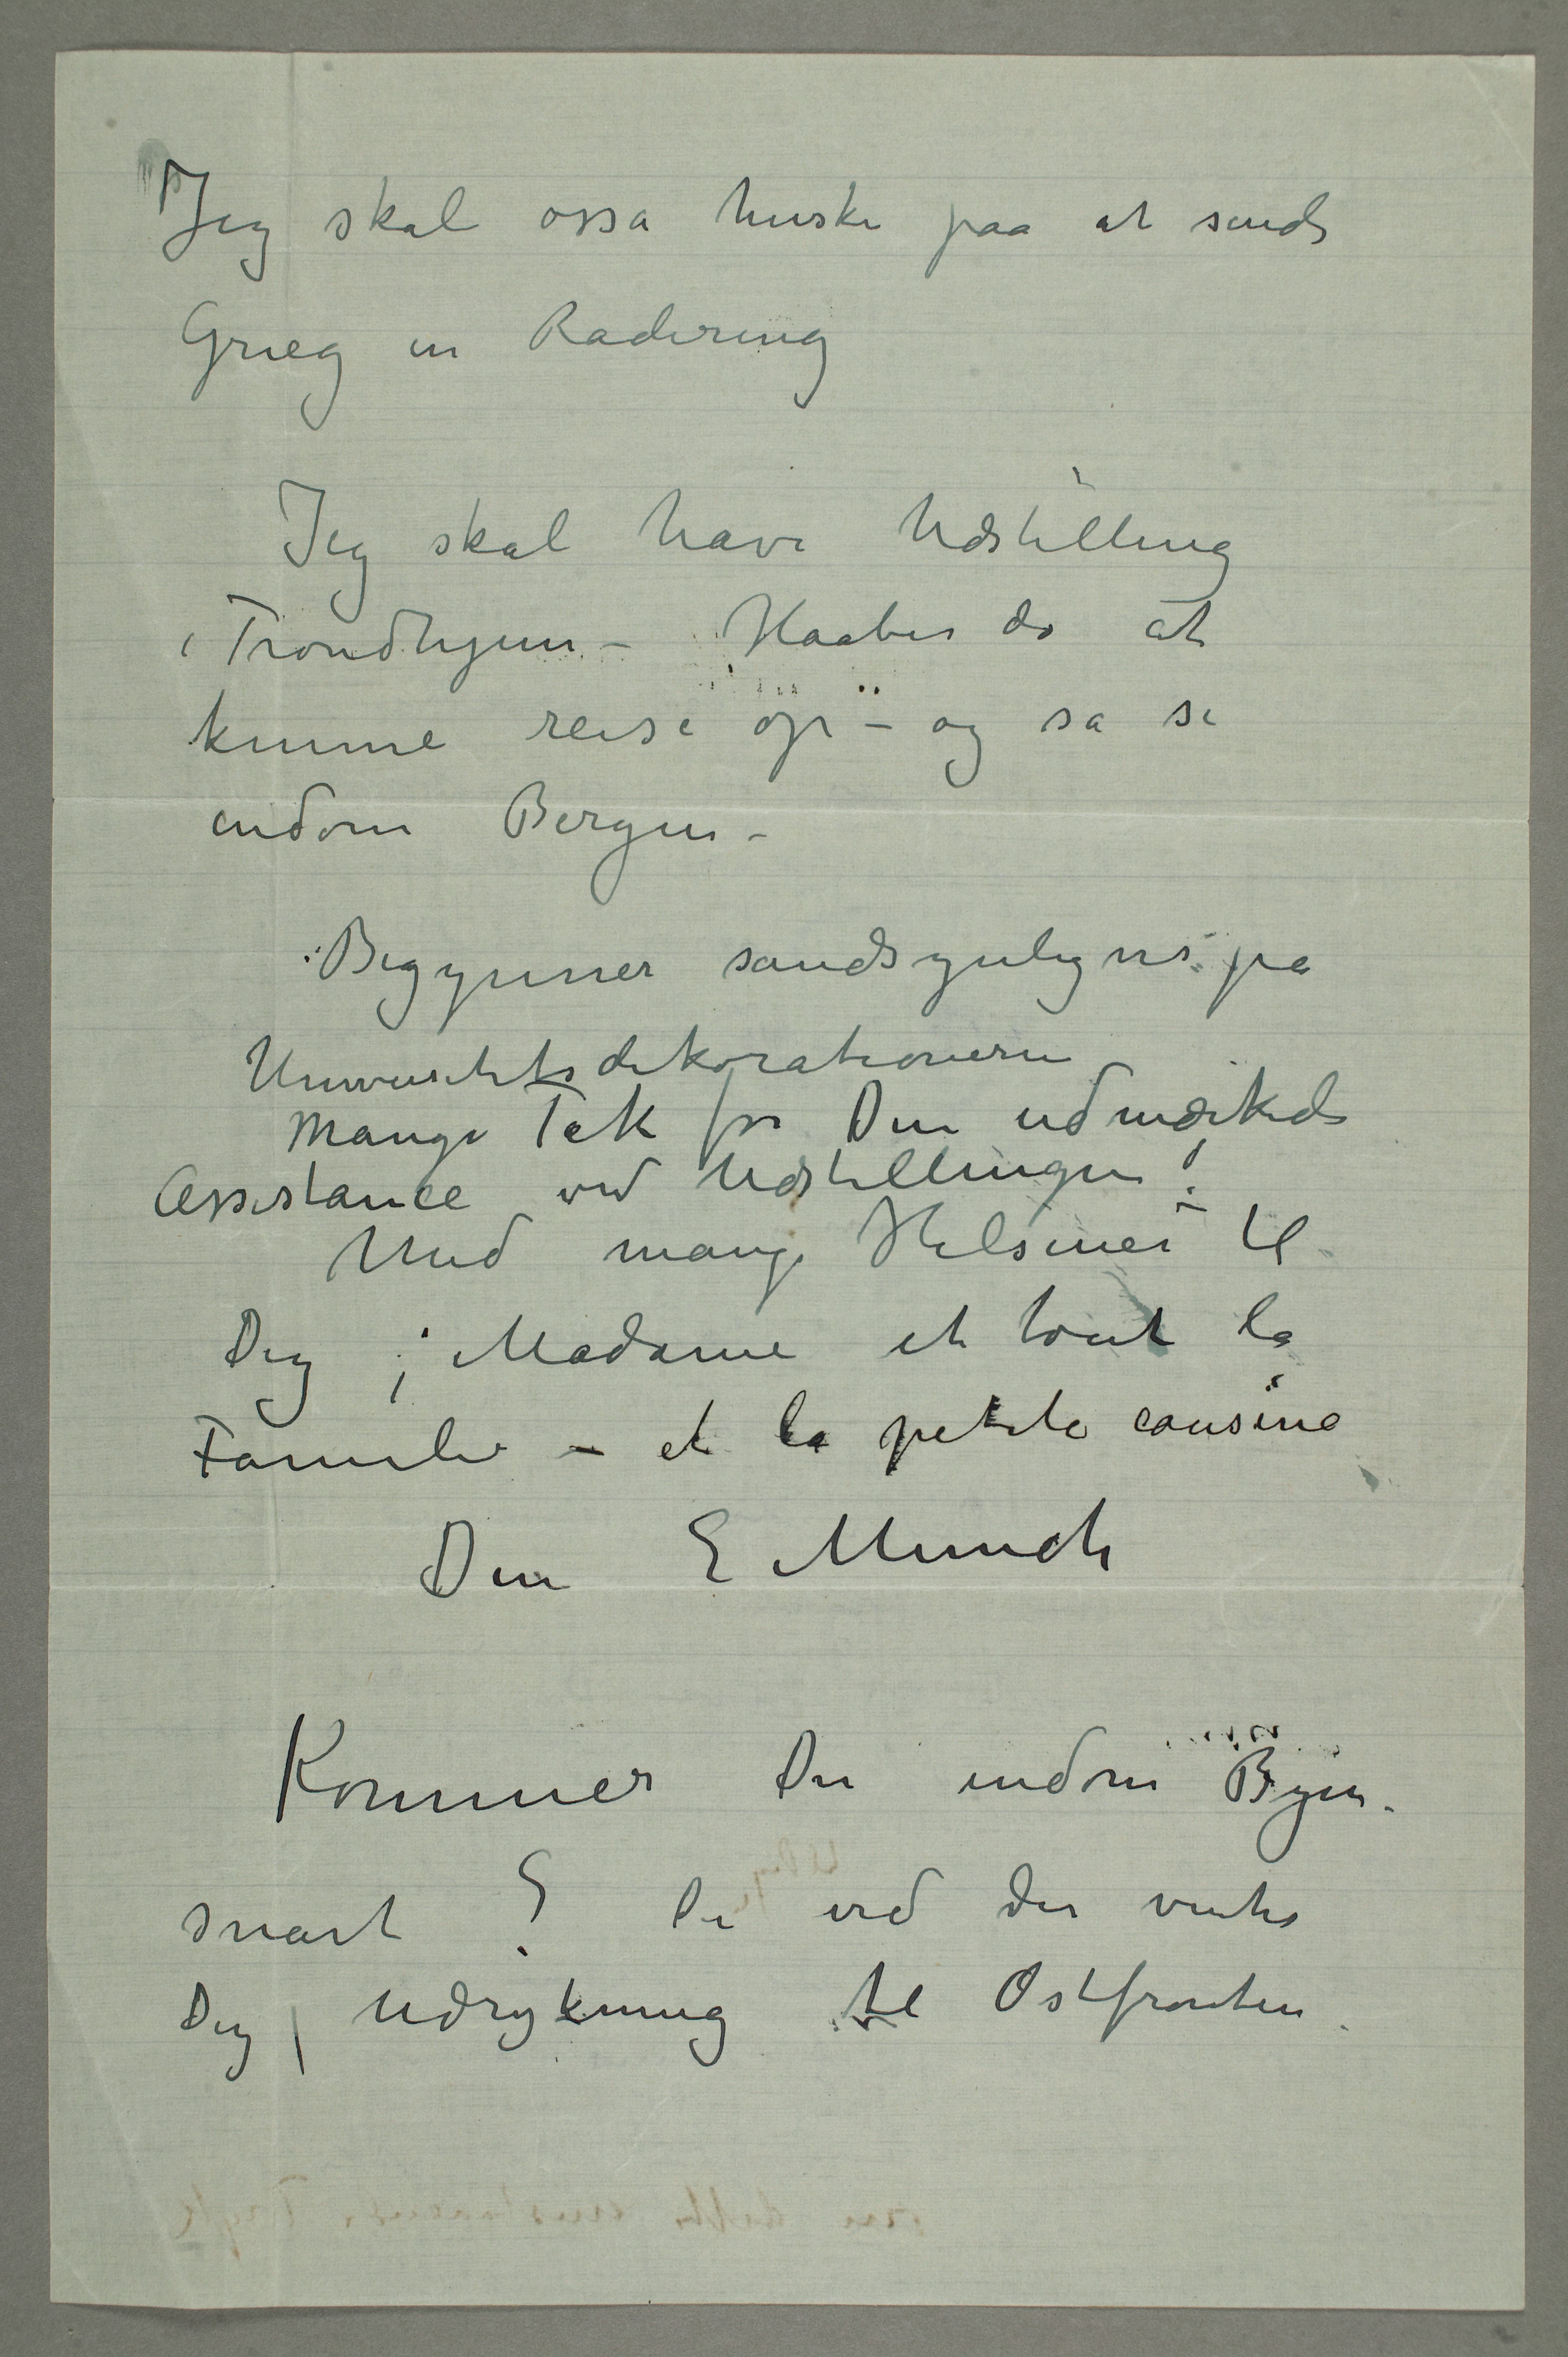 Jeg skal ossa huske paa at sende
Grieg en Radering
Jeg skal have Udstilling
i Trondhjem – Haaber da at
kunne reise op – og så se
indom Bergen –
Begynner sandsynligvis på
Universitetsdekorationerne
Mange Tak for Din udmærkede
Assistance ved Udstillingen!
Med mange Hilsener til
Dig ; Madame et tout la
Familie – et la petite cousine
Din E Munch
Kommer Du indom Byen
snart ? Du ved der ventes
Dig | Udrykning til Ostfronten